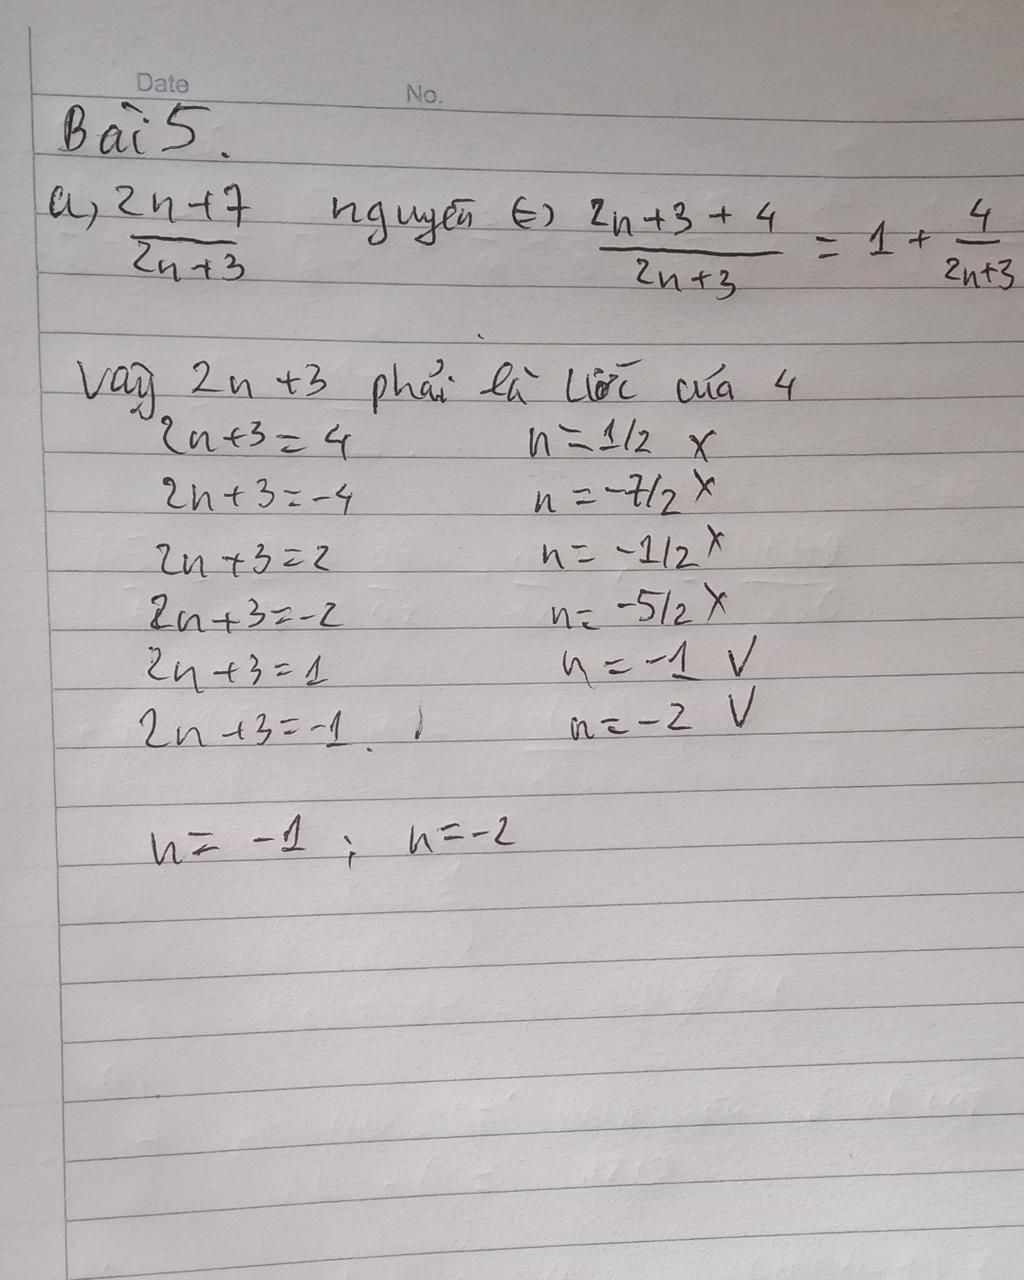 Date No.
Bài 5.
a, 2n+7 / 2n+3 nguyên <=> 2n+3+4 / 2n+3 = 1 + 4 / 2n+3
Vậy 2n+3 phải là ước của 4
2n+3=4 n=1/2 x
2n+3=-4 n=-7/2 x
2n+3=2 n=-1/2 x
2n+3=-2 n=-5/2 x
2n+3=1 n=-1 v
2n+3=-1. n=-2 v
n=-1; n=-2